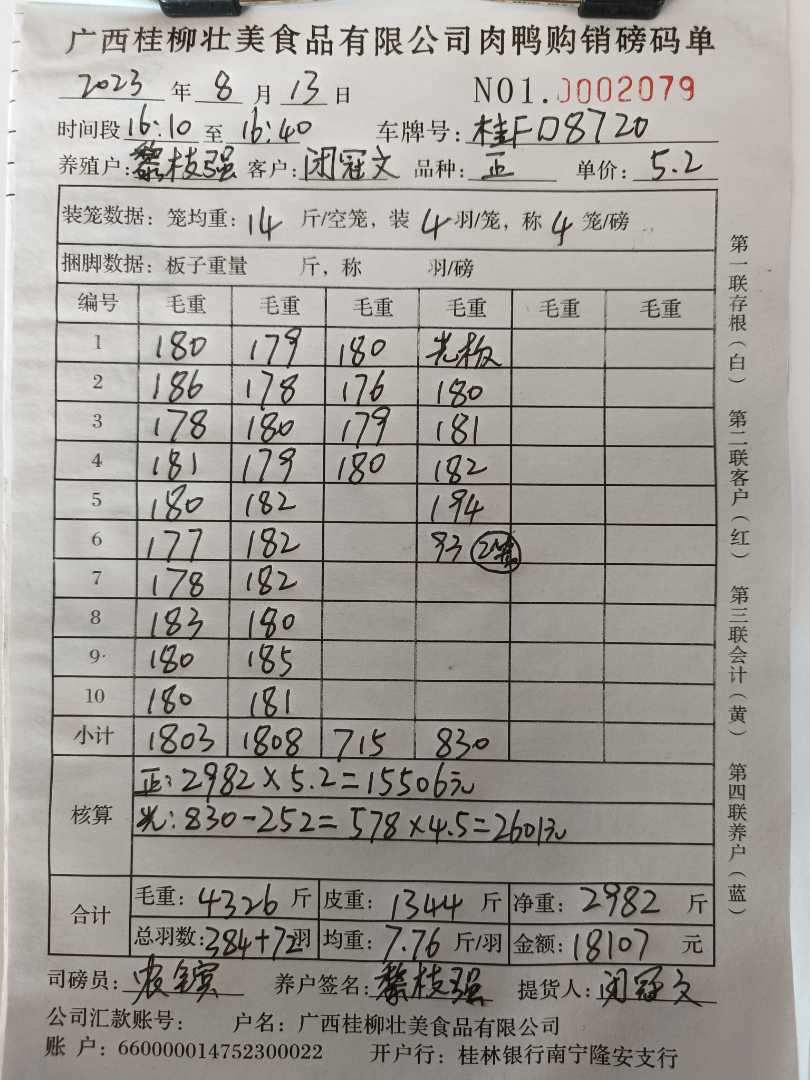 广西桂柳壮美食品有限公司肉鸭购销磅码单
2023 年 8 月 13 日 NO1.0002079
时间段 16:10 至 16:40 车牌号: 桂F D8720
养殖户: 黎枝强 客户: 闭冠文 品种: 正 单价: 5.2
装笼数据: 笼均重: 14 斤/空笼, 装 4 羽/笼, 称 4 笼/磅
捆脚数据: 板子重量 斤, 称 羽/磅
编号 毛重 毛重 毛重 毛重 毛重 毛重
1 180 179 180 光板
2 186 178 176 180
3 178 180 179 181
4 181 179 180 182
5 180 182 194
6 177 182 93 2笼
7 178 182
8 183 180
9 180 185
10 180 181
小计 1803 1808 715 830
核算
正: 2982×5.2=15506元
光: 830-252=578×4.5=2601元
合计
毛重: 4326 斤 皮重: 1344 斤 净重: 2982 斤
总羽数: 384+72羽 均重: 7.76 斤/羽 金额: 18107 元
司磅员: 养户签名: 黎枝强 提货人: 闭冠文
公司汇款账号: 户名: 广西桂柳壮美食品有限公司
账 户: 660000014752300022 开户行: 桂林银行南宁隆安支行
第一联存根(白) 第二联客户(红) 第三联会计(黄) 第四联养户(蓝)